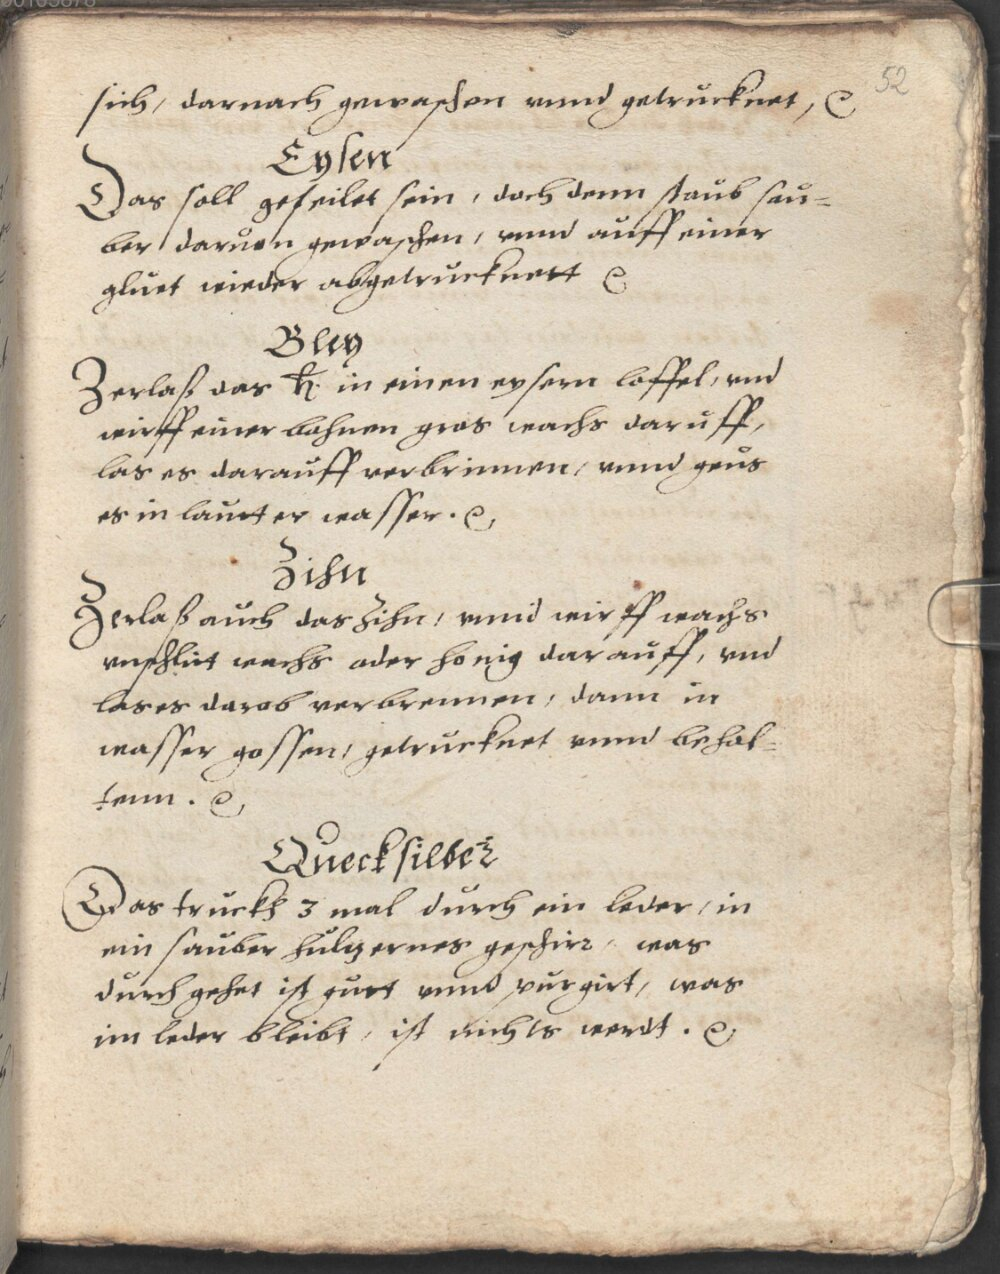 52
sich, darnach gewaschen vnnd getrucknet,
Eysen
Das soll gefeilet sein, doch denn staub sau-
ber daruon gewaschen, vnnd auff einer
gluet wieder abgetrucknett
Bley
Zerlaß das ♄ in einen eysern loffel, vnd
wirff einer bohnen gros wachs daruff,
las es darauff verbrinnen, vnnd geus
es in lautter wasser.
Zihn
Zerlaß auch das Zihn, vnnd wirff wachs
vnschlit wachs oder honig darauff, vnd
las es darob verbrennen, dann in
wasser gossen, getrucknet vnnd behal-
tenn.
Quecksilber
Das truckh 3 mal durch ein leder, in
ein sauber hultzernes geschirr, was
durch gehet ist gutt vnnd purgirt, was
im leder bleibt, ist nichts werdt.